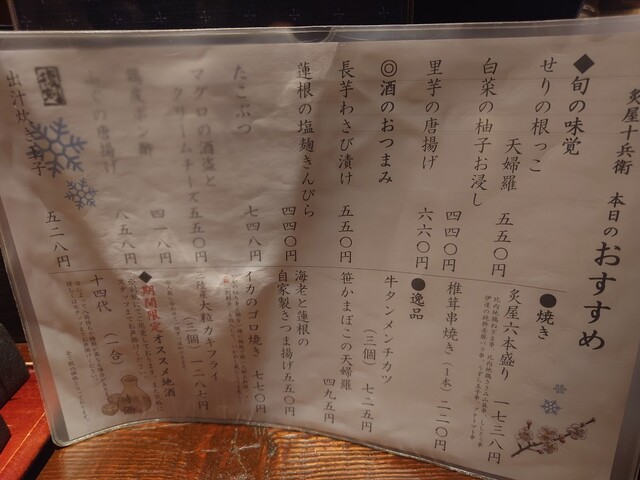 炙屋十兵衛 本日のおすすめ
◆旬の味覚
せりの根っこ
天婦羅 五五〇円
白菜の柚子お浸し
四四〇円
里芋の唐揚げ
六六〇円
◎酒のおつまみ
長芋わさび漬け
五五〇円
蓮根の塩麹きんぴら
四四〇円
たこぶつ
七四八円
マグロの酒盗と
クリームチーズ五五〇円
ポン酢
四一八円
の唐揚げ
八五八円
出汁炊き
五二八円
●焼き
炙屋六本盛り 一七三八円
椎茸串焼き(1本)二二〇円
●逸品
牛タンメンチカツ
(三個) 七二五円
笹かまぼこの天婦羅
四九五円
海老と蓮根の
自家製さつま揚げ五五〇円
イカのゴロ焼き 七七〇円
三陸産大粒カキフライ
(三個)一二八七円
◆期間限定オススメ地酒
十四代 (一合)